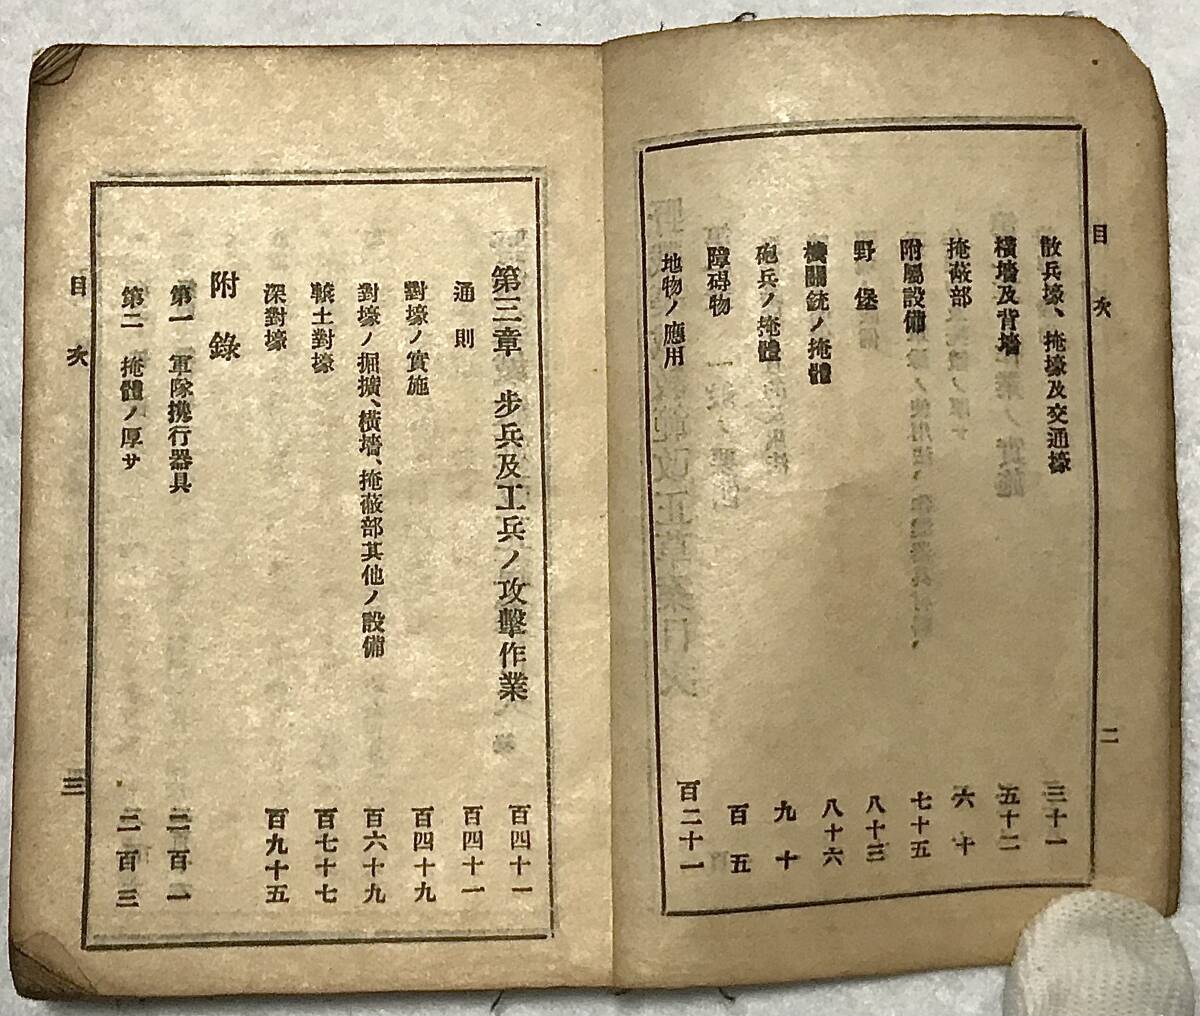 目次
二
散兵壕、掩壕及交通壕 三十一
橫墻及背墻 五十二
掩蔽部 六十
附屬設備 七十五
野堡 八十三
機關銃ノ掩體 八十六
砲兵ノ掩體 九十
障碍物 百五
地物ノ應用 百二十一
第三章 步兵及工兵ノ攻擊作業 百四十一
通則 百四十一
對壕ノ實施 百四十九
對壕ノ掘擴、橫墻、掩蔽部其他ノ設備 百六十九
土對壕 百七十七
深對壕 百九十五
附錄
第一 軍隊携行器具 二百一
第二 掩體ノ厚サ 二百三
目次
三